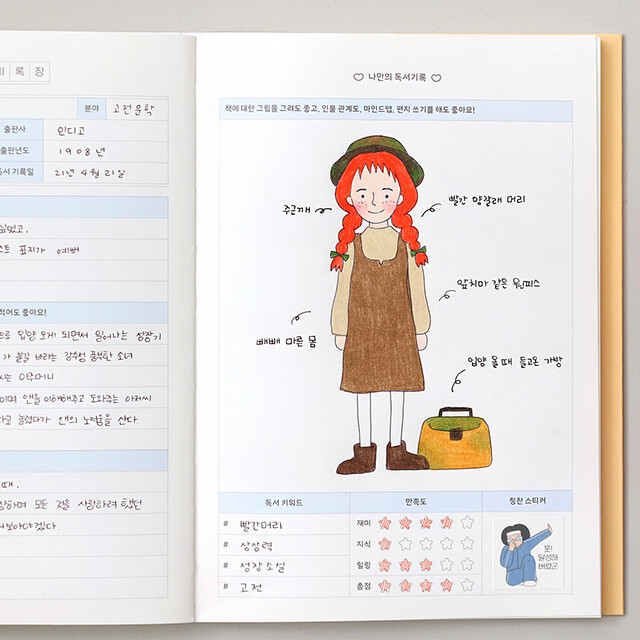 록 장
분야 고전문학
출판사 인디고
출판년도 1908년
록일 21년 4월 21일
표지가 예뻐
적어도 좋아요!
입양 오게 되면서 일어나는 성장기
바라는 감수성 풍부한 소녀
아주머니
앤을 이해해주고 도와주는 아저씨
놀렸다가 앤의 노여움을 산다.
때,
모든 것을 사랑하려 했던
나만의 독서기록
책에 대한 그림을 그려도 좋고, 인물 관계도, 마인드맵, 편지 쓰기를 해도 좋아요!
주근깨
빨간 양갈래 머리
앞치마 같은 원피스
빼빼 마른 몸
입양 올 때 들고온 가방
독서 키워드
# 빨간머리
# 상상력
# 성장소설
# 고전
만족도
재미
지식
힐링
총점
칭찬 스티커
오!
달성해
버렸군